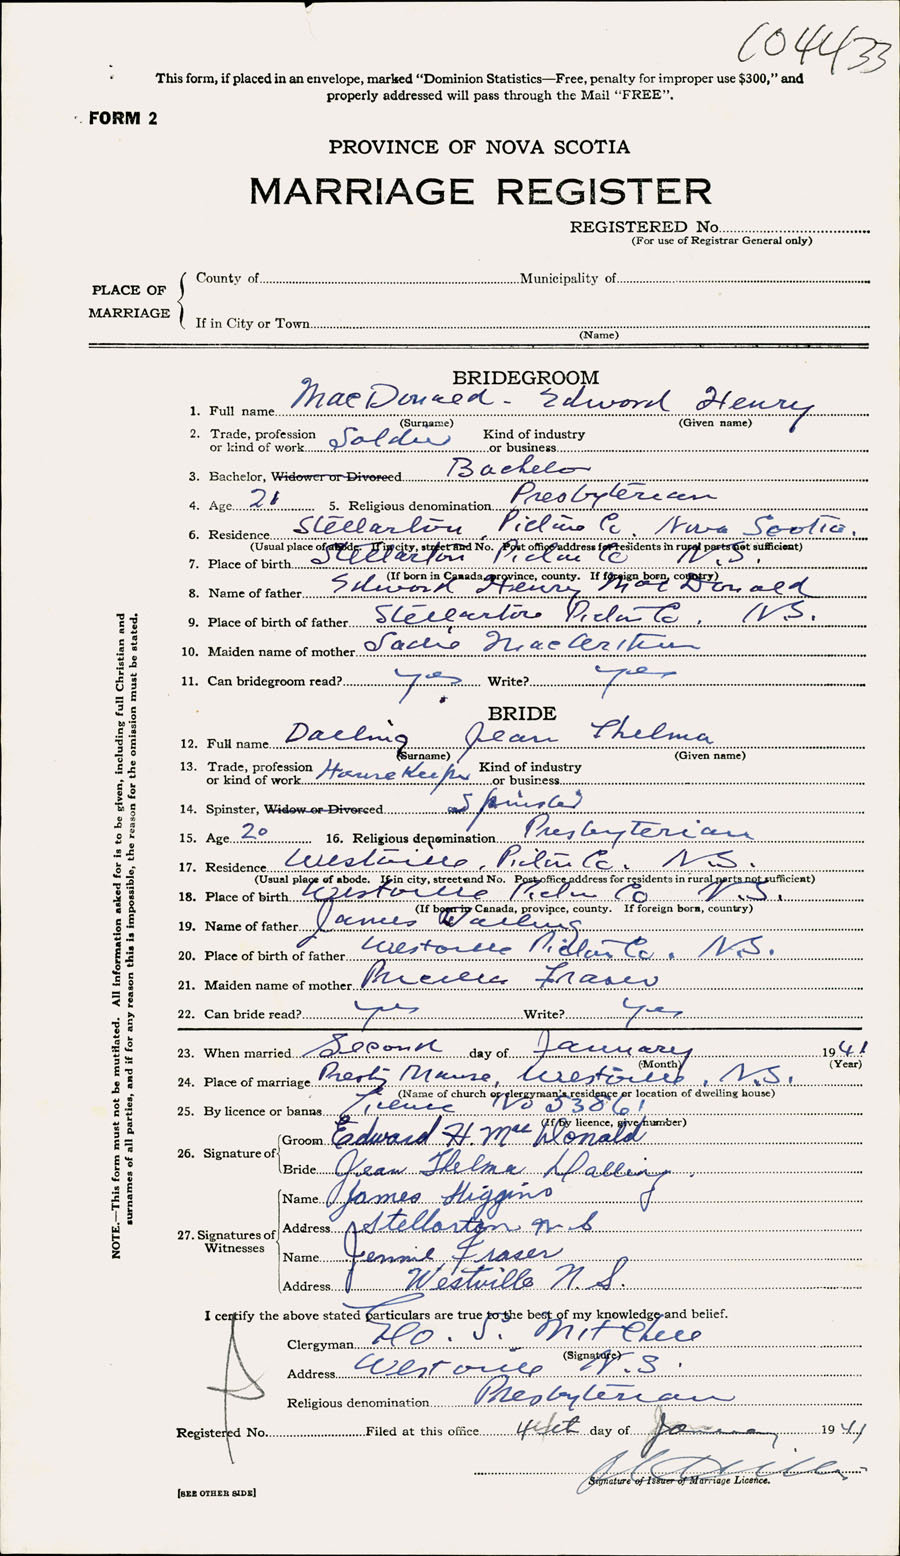 604433
This form, if placed in an envelope, marked "Dominion Statistics—Free, penalty for improper use $300," and
properly addressed will pass through the Mail "FREE".
FORM 2
PROVINCE OF NOVA SCOTIA
MARRIAGE REGISTER
REGISTERED No.
(For use of Registrar General only)
PLACE OF MARRIAGE
County of Municipality of
If in City or Town
(Name)
BRIDEGROOM
1. Full name MacDonald - Edword Henry
(Surname) (Given name)
2. Trade, profession or kind of work Soldier Kind of industry or business
3. Bachelor, Widower or Divorced Bachelor
4. Age 21 5. Religious denomination Presbyterian
6. Residence Stellarton, Pictou Co. Nova Scotia.
(Usual place of abode. If in city, street and No. Post office address for residents in rural parts not sufficient)
7. Place of birth Stellarton Pictou Co N.S.
(If born in Canada, province, county. If foreign born, country)
8. Name of father Edword Henry MacDonald
9. Place of birth of father Stellarton Pictou Co. N.S.
10. Maiden name of mother Sadie MacArthur
11. Can bridegroom read? yes Write? yes
BRIDE
12. Full name Darling Jean Thelma
(Surname) (Given name)
13. Trade, profession or kind of work HouseKeeper Kind of industry or business
14. Spinster, Widow or Divorced Spinster
15. Age 20 16. Religious denomination Presbyterian
17. Residence Westville, Pictou Co. N.S.
(Usual place of abode. If in city, street and No. Post office address for residents in rural parts not sufficient)
18. Place of birth Westville Pictou Co N.S.
(If born in Canada, province, county. If foreign born, country)
19. Name of father James Darling
20. Place of birth of father Westville Pictou Co. N.S.
21. Maiden name of mother Fraser
22. Can bride read? yes Write? yes
23. When married Second day of January 1941
(Month) (Year)
24. Place of marriage Presby Manse, Westville, N.S.
(Name of church or clergyman's residence or location of dwelling house)
25. By licence or banns Licence No 53861
(If by licence, give number)
26. Signature of
Groom Edward H. MacDonald
Bride Jean Thelma Dalling.
27. Signatures of Witnesses
Name James Higgins
Address Stellarton N S
Name Jennie Fraser
Address Westville N.S.
I certify the above stated particulars are true to the best of my knowledge and belief.
Clergyman S. Mitchell
(Signature)
Address Westville N.S.
Religious denomination Presbyterian
Registered No. Filed at this office 4 day of January 1941
Signature of Issuer of Marriage Licence.
[SEE OTHER SIDE]
NOTE.—This form must not be mutilated. All information asked for is to be given, including full Christian and
surnames of all parties, and if for any reason this is impossible, the reason for the omission must be stated.